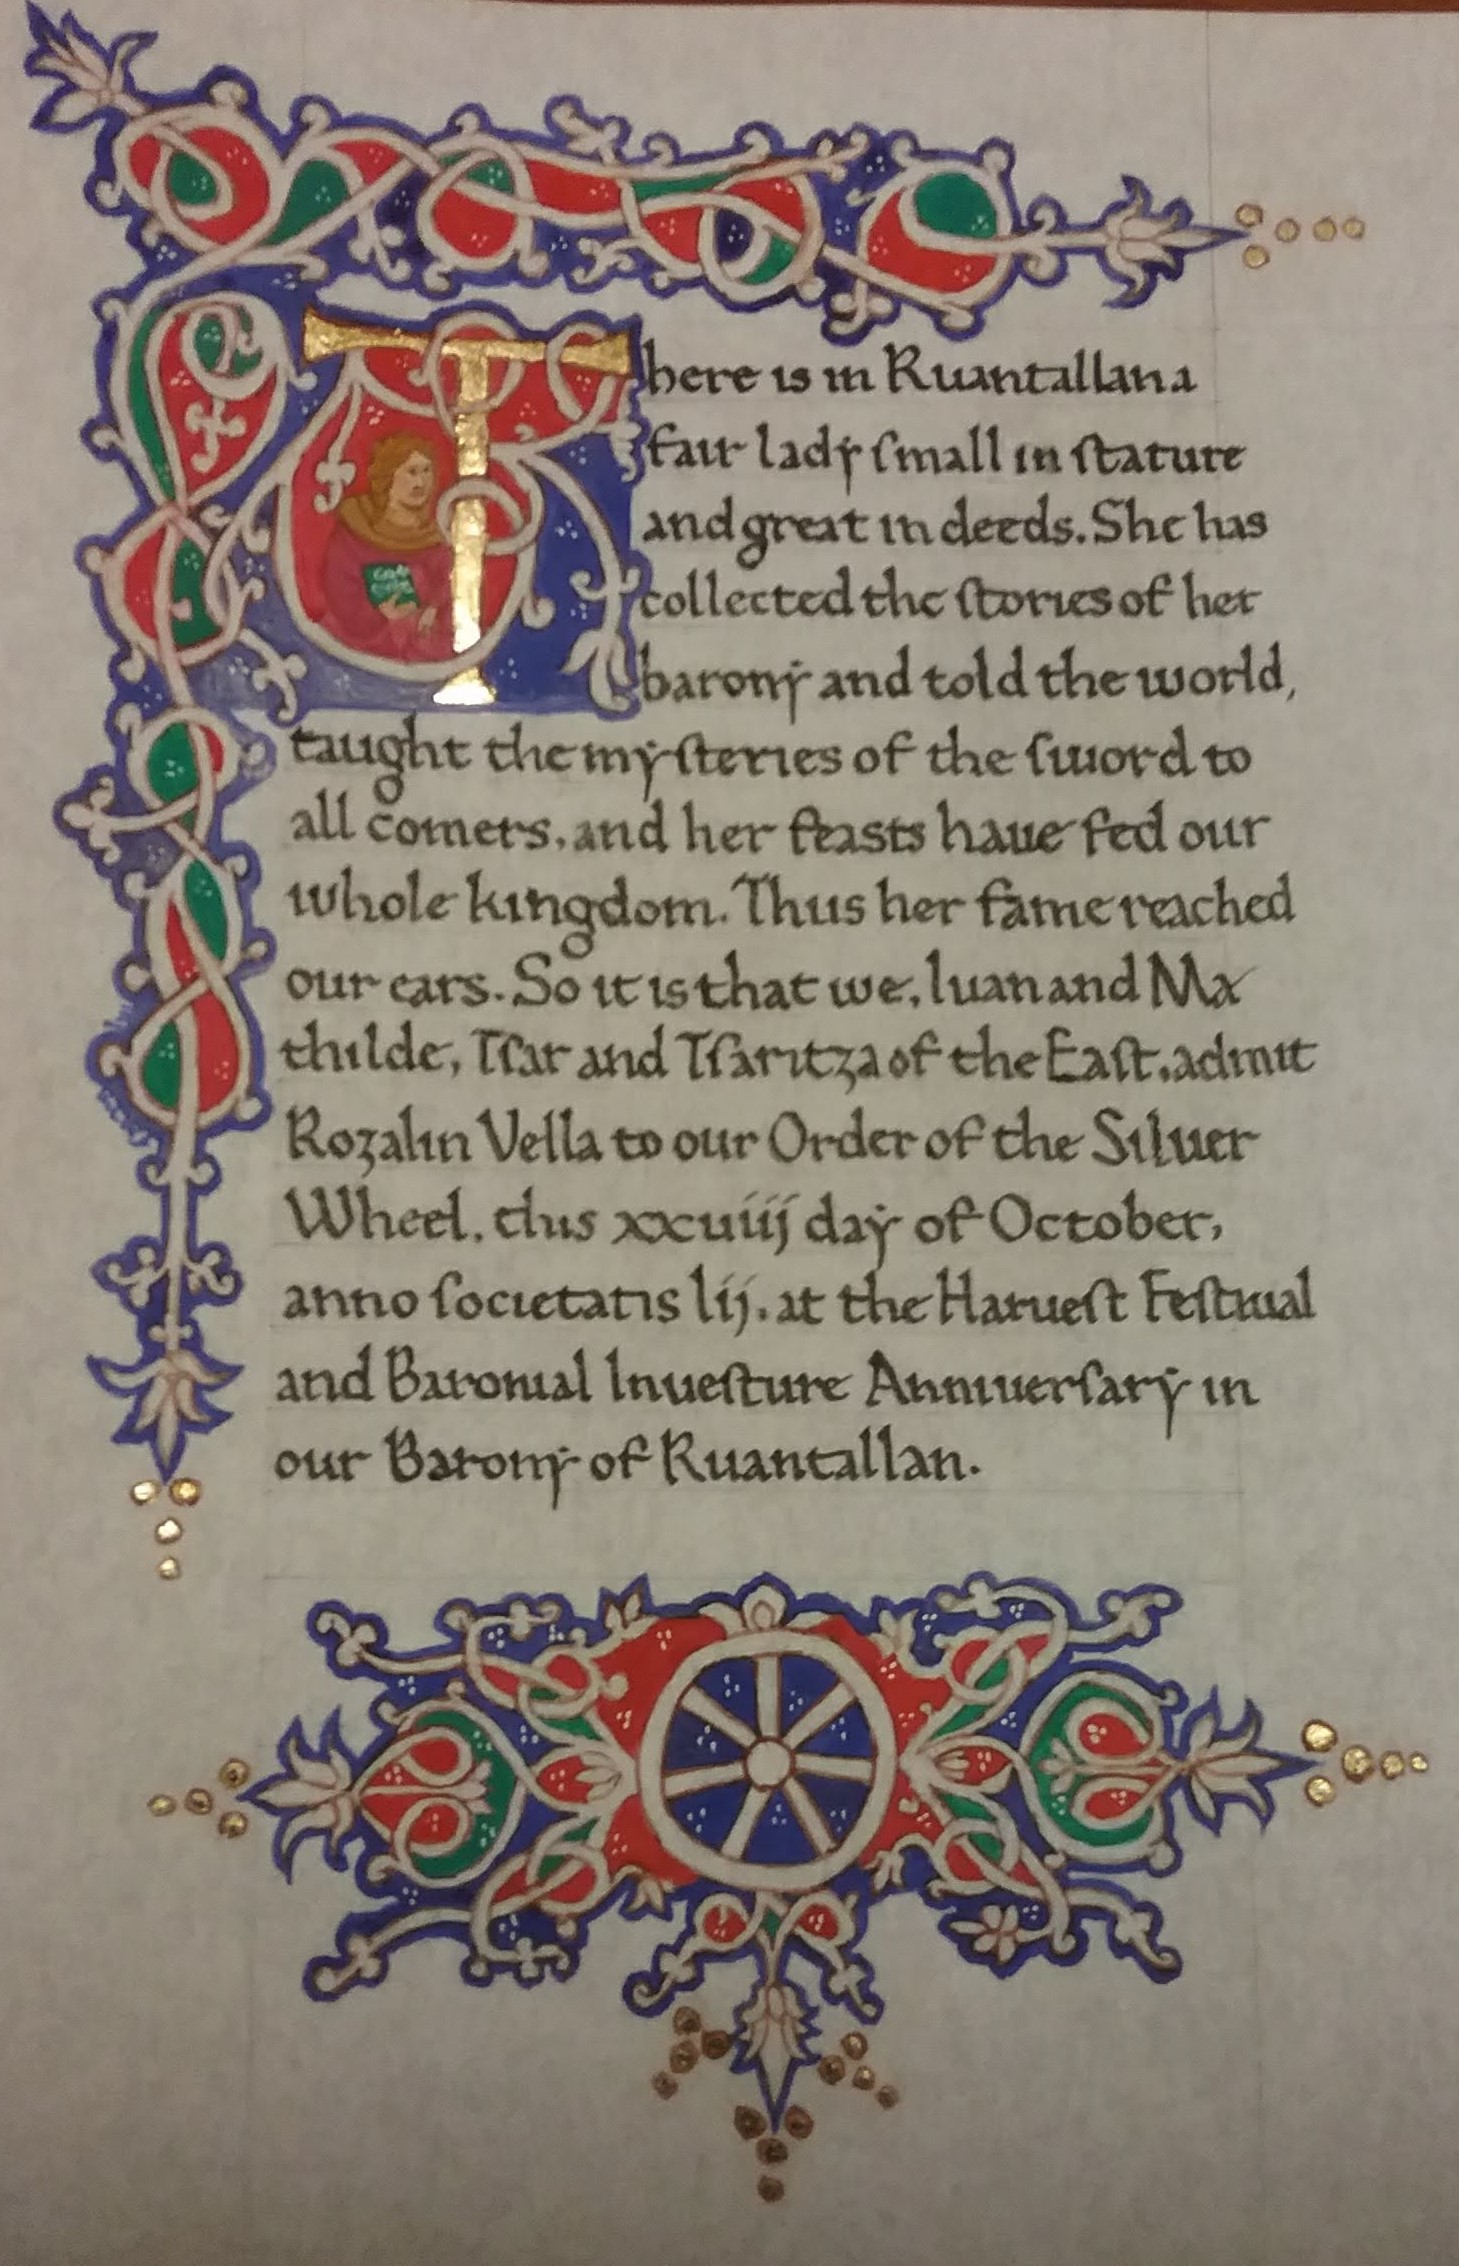 There is in Ruantallan a
fair lady ſmall in ſtature
and great in deeds. She has
collected the ſtories of her
barony and told the world,
taught the myſteries of the ſword to
all comers, and her feasts haue fed our
whole kingdom. Thus her fame reached
our ears. So it is that we, Iuan and Ma
thilde, Tſar and Tſaritza of the Eaſt, admit
Rozalin Vella to our Order of the Siluer
Wheel, this xxuiij day of October,
anno ſocietatis lij, at the Harueſt Feſtiual
and Baronial Inueſture Anniuerſary in
our Barony of Ruantallan.